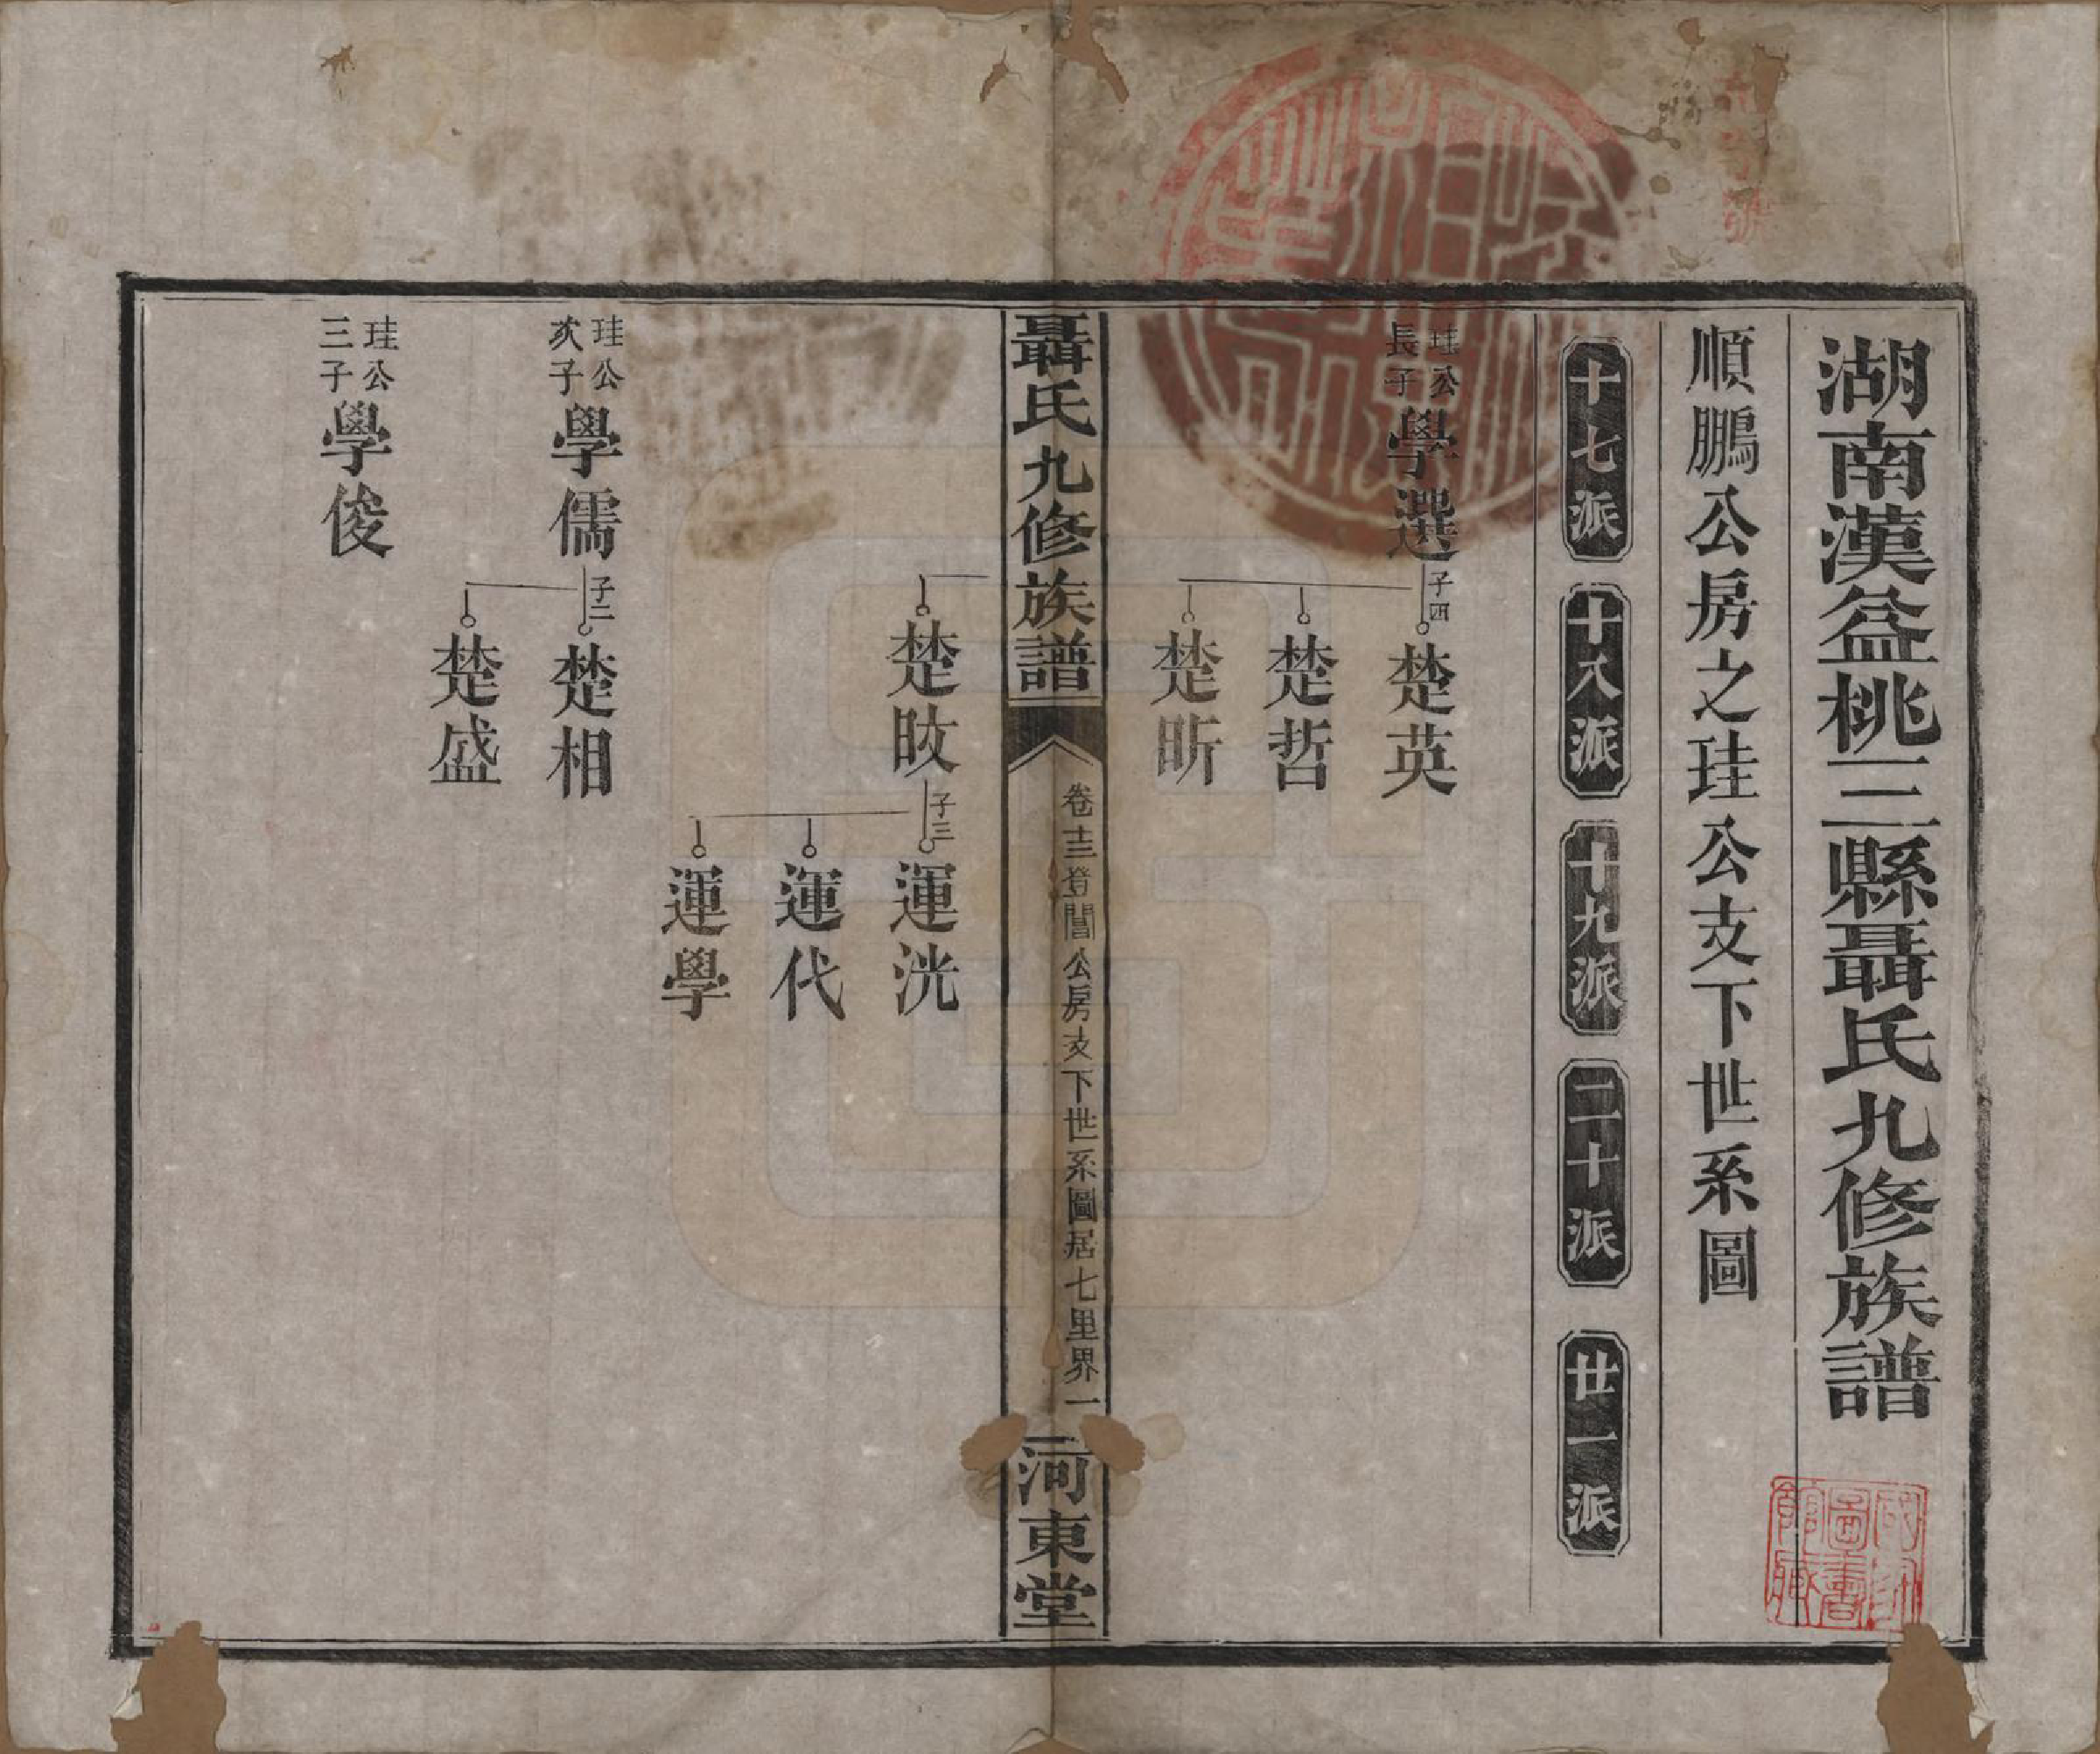 湖南漢益桃三縣聶氏九修族譜
順鵬公房之珪公支下世系圖
十七派
十八派
十九派
二十派
廿一派
珪公
長子
學選
子四
楚英
楚哲
楚昕
聶氏九修族譜
卷十三登閶公房支下世系圖居七里界
一
河東堂
楚旼
子三
運洸
運代
運學
珪公
次子
學儒
子二
楚相
楚盛
珪公
三子
學俊